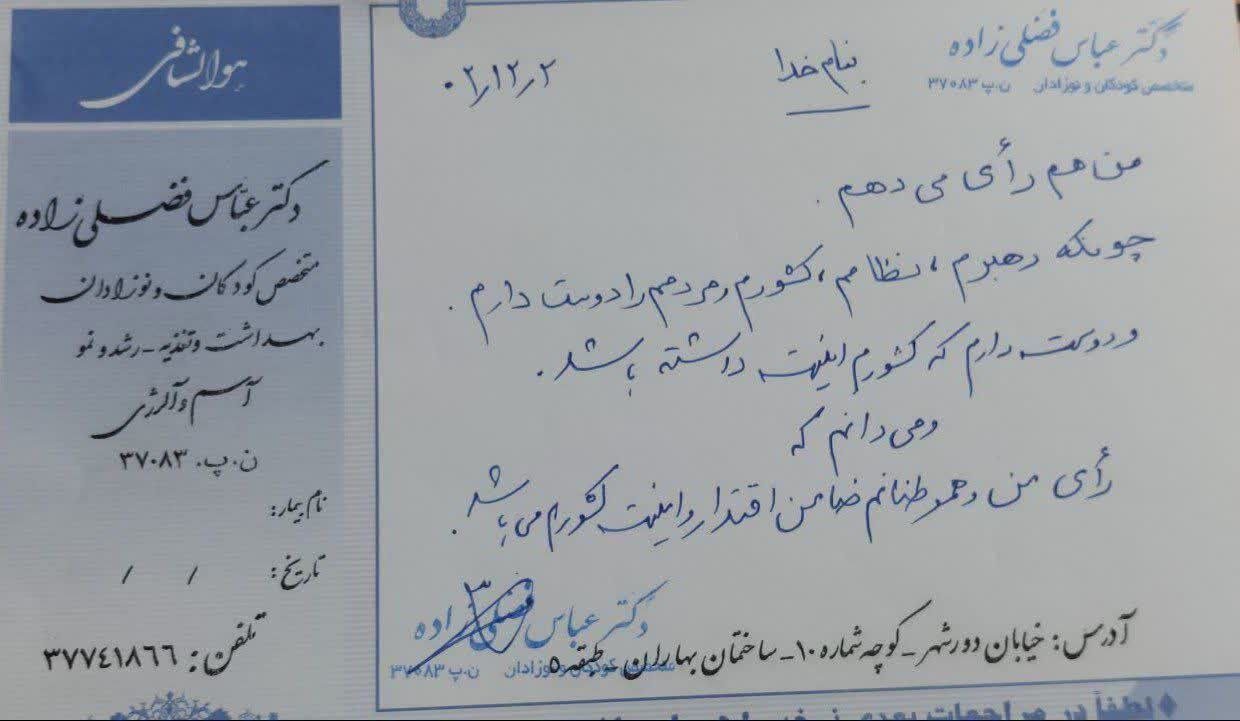 دکتر عباس فضلی زاده
متخصص کودکان و نوزادان ن.پ ۳۷۰۸۳
بنام خدا
۰۲٫۱۲٫۲
من هم رأی می دهم.
چونکه رهبرم، نظامم، کشورم و مردمم را دوست دارم.
و دوست دارم که کشورم امنیت داشته باشد.
و می دانم که
رأی من و هموطنانم ضامن اقتدار و امنیت کشورم می باشد.
دکتر عباس فضلی زاده
متخصص کودکان و نوزادان ن.پ ۳۷۰۸۳
آدرس: خیابان دورشهر - کوچه شماره ۱۰ - ساختمان بهاران - طبقه ۵
لطفاً در مراجعات بعدی
هوالشافی
دکتر عباس فضلی زاده
متخصص کودکان و نوزادان
بهداشت و تغذیه - رشد و نمو
آسم و آلرژی
ن.پ. ۳۷۰۸۳
نام بیمار:
تاریخ: / /
تلفن: ۳۷۷٤۱۸٦٦